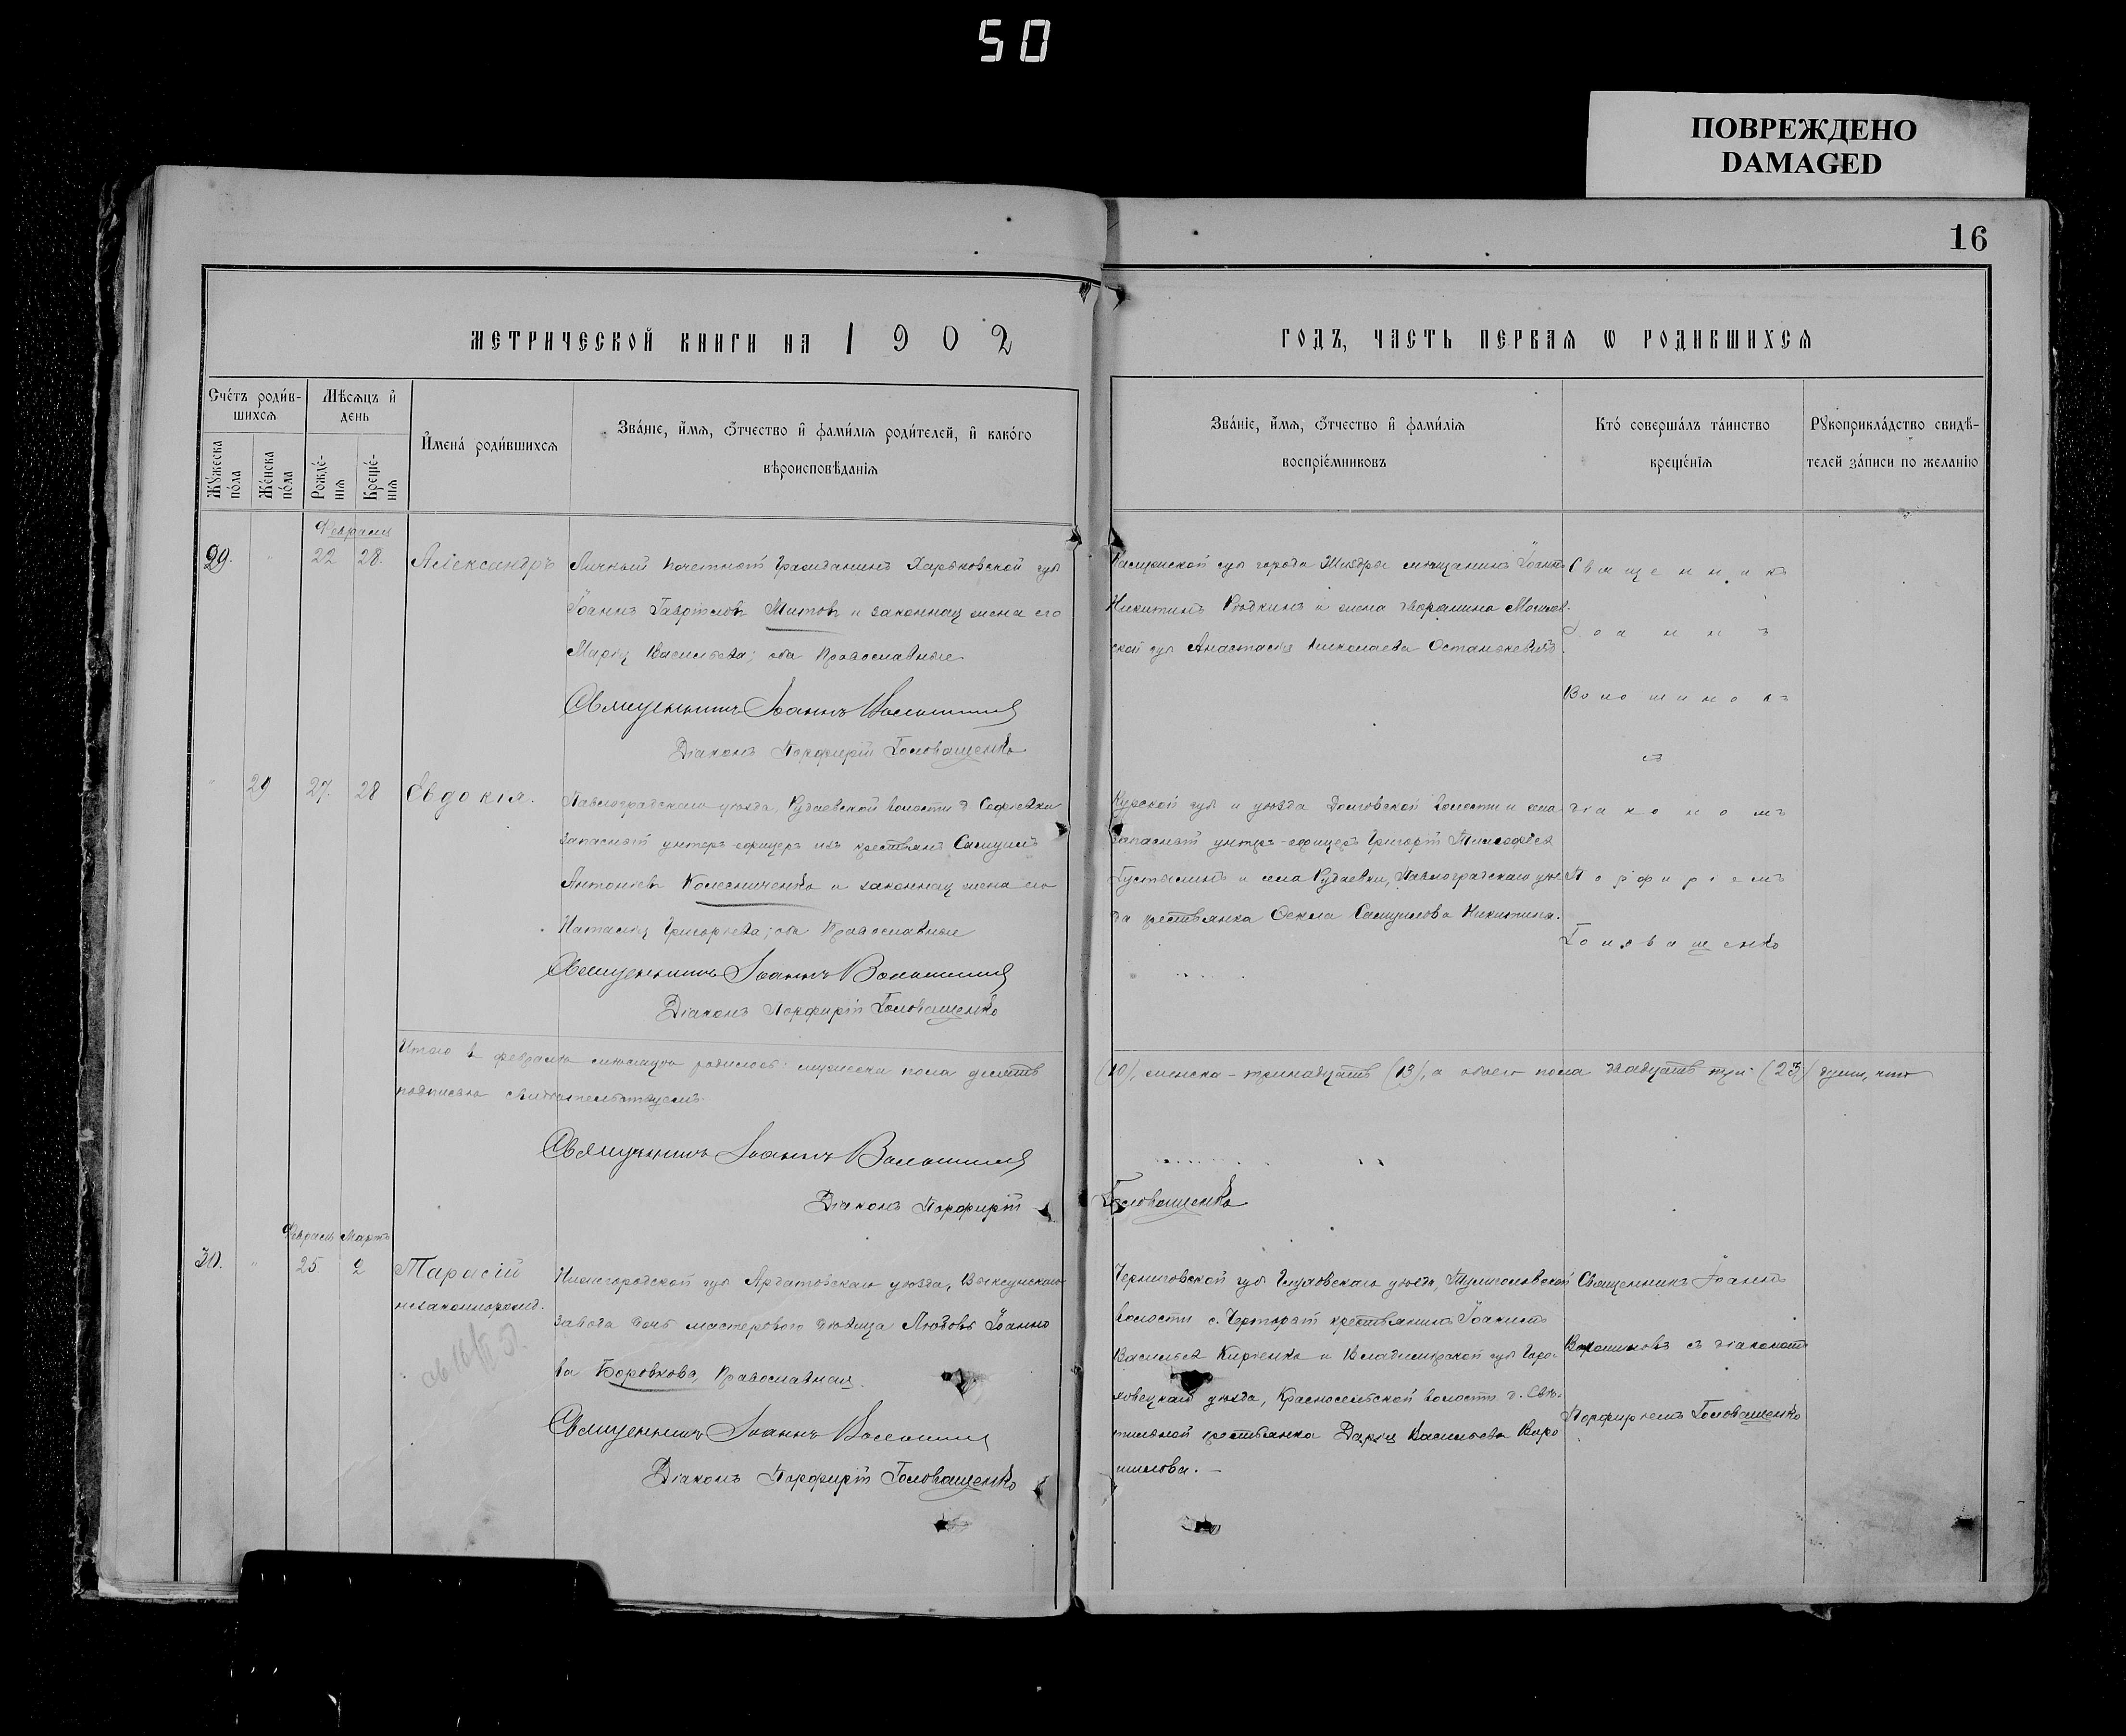 50
ПОВРЕЖДЕНО
DAMAGED
16
МЕТРИЧЕСКОЙ КНИГИ НА 1902
ГОДЪ, ЧАСТЬ ПЕРВАѦ Ѡ РОДИВШИХСѦ
Счетъ родив-
шихсѧ
Мужеска
пола
Женска
пола
Мѣсѧцъ и
день
Рожде-
нія
Креще-
нія
Имена родившихсѧ
Званіе, имѧ, отчество и фамилія родителей, и какого
вѣроисповѣданія
Званіе, имѧ, отчество и фамилія
воспріемниковъ
Кто совершалъ таинство
крещенія
Рукоприкладство свидѣ-
телей записи по желанію
Февраль
29. " 22 28. Александръ
Личный почетный гражданинъ Харьковской губ
Іоаннъ Митовъ и законная жена его
Марія Васильева; оба Православные
Священникъ Іоаннъ Волошиновъ
Діаконъ Порфирій Головашенко
губ города Жиздры мѣщанинъ Іоаннъ
Никитинъ и жена дворянина Могилев-
ской губ Анастасія Николаева
Священникъ
Іоаннъ
Волошиновъ
съ
діакономъ
Порфиріемъ
Головашенко
" 29 27. 28 Евдокія.
Павлоградскаго уѣзда, волости д Софіевки
запасный унтеръ-офицеръ изъ крестьянъ Самуилъ
Антоніевъ Колесниченко и законная жена его
Наталія Григорьева; оба Православные
Священникъ Іоаннъ Волошиновъ
Діаконъ Порфирій Головашенко
Курской губ и уѣзда волости и села
запасный унтеръ-офицеръ Григорій
и села Павлоградскаго уѣз
да крестьянка Самуилова Никитина.
Итого въ февралѣ мѣсяцѣ родилось: мужеска пола десять
(10), женска - тринадцать (13), а обоего пола двадцать три (23) души, что
подписью свидѣтельствуемъ.
Священникъ Іоаннъ Волошиновъ
Діаконъ Порфирій
Головашенко
Февраль Мартъ
30. " 25 2 Тарасій
незаконнорожд.
Нижегородской губ Ардатовскаго уѣзда, Выксунскаго
завода дочь мастероваго дѣвица Любовь Іоанно
ва Боровкова, Православная.
Священникъ Іоаннъ Волошиновъ
Діаконъ Порфирій Головашенко
Черниговской губ Глуховскаго уѣзда, Тулиголовской
волости с. крестьянинъ
Васильевъ Киріенко и Владимірской губ Горо-
ховецкаго уѣзда, Красносельской волости д.
крестьянка Дарія Васильева
шилова. –
Священникъ Іоаннъ
Волошиновъ съ діакономъ
Порфиріемъ Головашенко